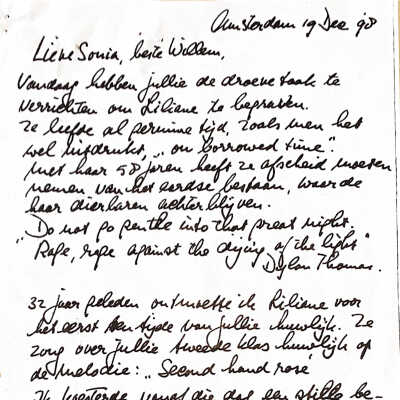 Amsterdam 19 Dec 98
Lieve Sonia, beste Willem,
Vandaag hebben jullie de droeve taak te
verrichten om Liliane te begraven.
Ze leefde al geruime tijd, zoals men het
wel uitdrukt, "on borrowed time".
Met haar 58 jaren heeft ze afscheid moeten
nemen van het eerdse bestaan, waar de
haar dierbaren achterblijven.
"Do not go gentle into that great night.
Rage, rage against the dying of the light"
Dylan Thomas.
32 jaar geleden ontmoette ik Liliane voor
het eerst ten tijde van jullie huwelijk. Ze
zong over jullie tweede klas huwelijk op
de melodie: "Second hand rose"
Ik koesterde vanaf die dag een stille be-